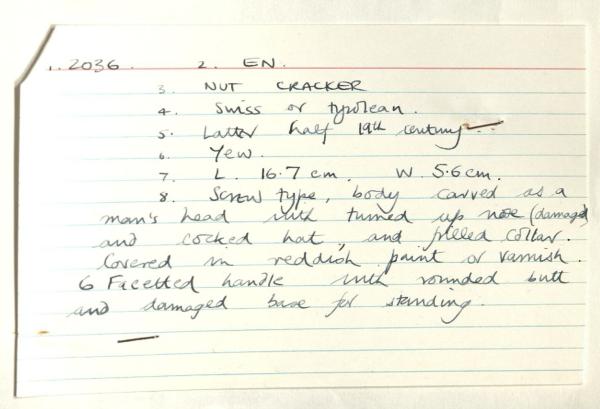 1. 2036. 2. EN.
3. NUT CRACKER
4. Swiss or tyrolean.
5. Latter half 19th century.
6. Yew.
7. L. 16.7 cm. W. 5.6 cm.
8. Screw type, body carved as a
man's head with turned up nose (damaged)
and cocked hat, and frilled collar.
Covered in reddish paint or varnish.
6 Facetted handle with rounded butt
and damaged base for standing.